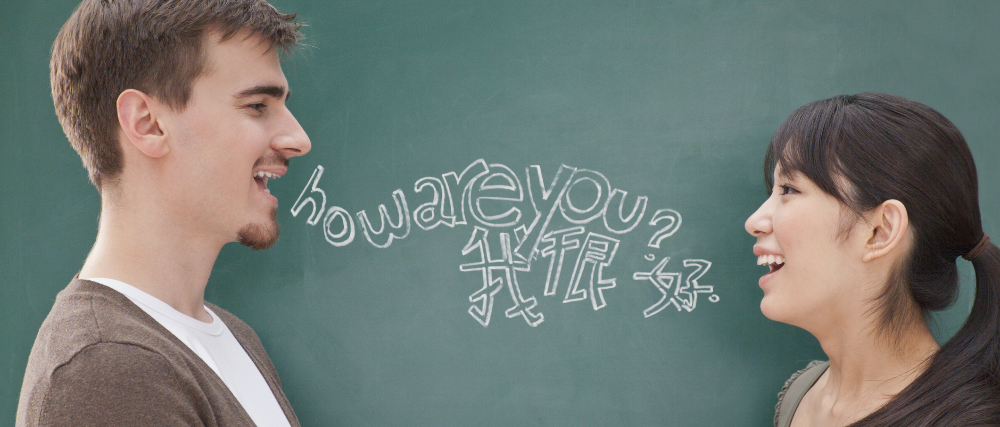 how are you?
我很好.